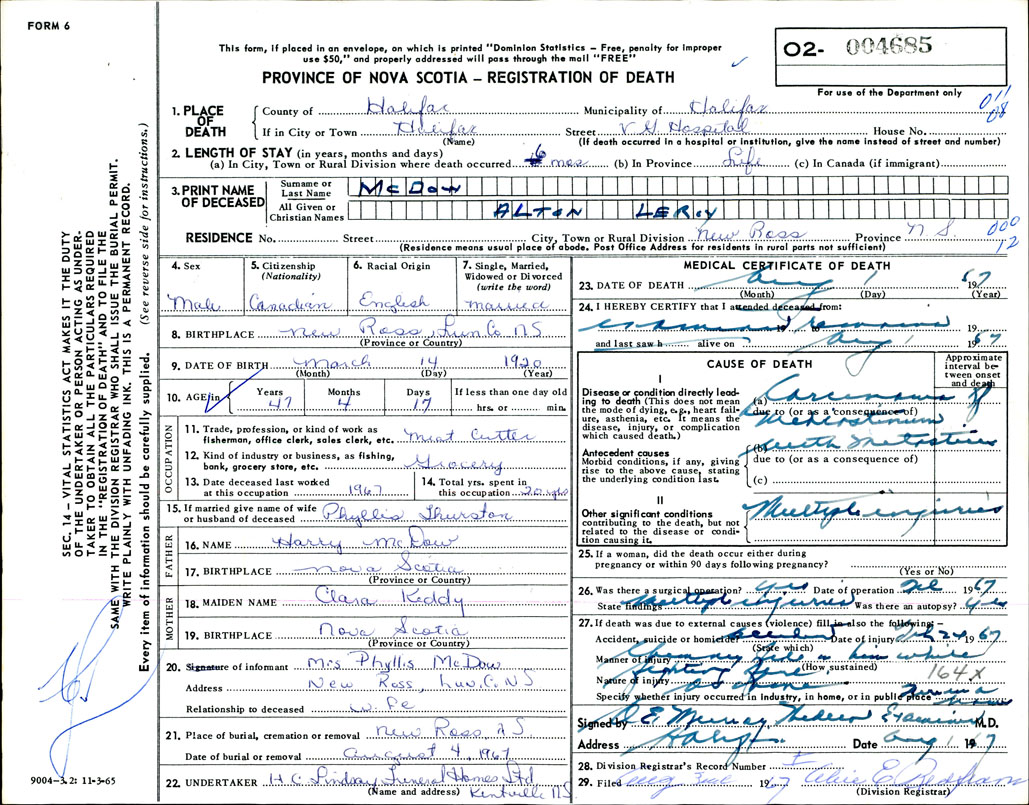 FORM 6
This form, if placed in an envelope, on which is printed "Dominion Statistics – Free, penalty for improper
use $50," and properly addressed will pass through the mail "FREE"
PROVINCE OF NOVA SCOTIA – REGISTRATION OF DEATH
02- 004685
For use of the Department only
011
08
SEC. 14 – VITAL STATISTICS ACT MAKES IT THE DUTY
OF THE UNDERTAKER OR PERSON ACTING AS UNDER-
TAKER TO OBTAIN ALL THE PARTICULARS REQUIRED
IN THE "REGISTRATION OF DEATH" AND TO FILE THE
SAME WITH THE DIVISION REGISTRAR WHO SHALL ISSUE THE BURIAL PERMIT.
WRITE PLAINLY WITH UNFADING INK. THIS IS A PERMANENT RECORD.
Every item of information should be carefully supplied. (See reverse side for instructions.)
1. PLACE OF DEATH
County of Halifax Municipality of Halifax
If in City or Town Halifax Street V G Hospital House No.
(Name) (If death occurred in a hospital or institution, give the name instead of street and number)
2. LENGTH OF STAY (in years, months and days)
(a) In City, Town or Rural Division where death occurred 6 mos (b) In Province Life (c) In Canada (if immigrant)
3. PRINT NAME OF DECEASED
Surname or Last Name McDow
All Given or Christian Names ALTON LEROY
RESIDENCE No. Street City, Town or Rural Division New Ross Province N.S.
000
12
(Residence means usual place of abode. Post Office Address for residents in rural parts not sufficient)
4. Sex
Male
5. Citizenship (Nationality)
Canadian
6. Racial Origin
English
7. Single, Married, Widowed or Divorced (write the word)
married
8. BIRTHPLACE New Ross Lun Co NS
(Province or Country)
9. DATE OF BIRTH March 14 1920
(Month) (Day) (Year)
10. AGE in Years 47 Months 4 Days 17 If less than one day old hrs. or min.
OCCUPATION
11. Trade, profession, or kind of work as
fisherman, office clerk, sales clerk, etc. Meat Cutter
12. Kind of industry or business, as fishing,
bank, grocery store, etc. Grocery
13. Date deceased last worked
at this occupation 1967
14. Total yrs. spent in
this occupation 20 yrs
15. If married give name of wife
or husband of deceased Phyllis Thurston
FATHER
16. NAME Harry McDow
17. BIRTHPLACE Nova Scotia
(Province or Country)
MOTHER
18. MAIDEN NAME Clara Keddy
19. BIRTHPLACE Nova Scotia
(Province or Country)
20. Signature of informant Mrs Phyllis McDow
Address New Ross, Lun. C. NS
Relationship to deceased
21. Place of burial, cremation or removal New Ross NS
Date of burial or removal August 4 1967
22. UNDERTAKER H C Lindsay Funeral Homes Ltd
(Name and address) Kentville N.S.
9004-3.2: 11-3-65
MEDICAL CERTIFICATE OF DEATH
23. DATE OF DEATH Aug 1 1967
(Month) (Day) (Year)
24. I HEREBY CERTIFY that I attended deceased from:
examined remains 19
and last saw h alive on Aug 1 1967
CAUSE OF DEATH
Approximate interval between onset and death
I
Disease or condition directly lead-
ing to death (This does not mean
the mode of dying, e.g., heart fail-
ure, asthenia, etc. It means the
disease, injury, or complication
which caused death.)
(a) Carcinoma of
due to (or as a consequence of)
Mediastinum
(b) with metastasis
due to (or as a consequence of)
(c)
Antecedent causes
Morbid conditions, if any, giving
rise to the above cause, stating
the underlying condition last.
II
Other significant conditions
contributing to the death, but not
related to the disease or condi-
tion causing it.
Multiple injuries
25. If a woman, did the death occur either during
pregnancy or within 90 days following pregnancy?
(Yes or No)
26. Was there a surgical operation? Yes Date of operation Feb 1967
State findings Multiple injuries Was there an autopsy? Yes
27. If death was due to external causes (violence) fill in also the following:–
Accident, suicide or homicide accident Date of injury Feb 24 1967
(State which)
Manner of injury Chimney fell on him while
(How sustained)
Nature of injury fighting fire
164 X
Specify whether injury occurred in industry, in home, or in public place
Signed by E Murray Medical Examiner M.D.
Address Halifax Date Aug 1 1967
28. Division Registrar's Record Number
29. Filed Aug 3rd 1967
(Division Registrar)